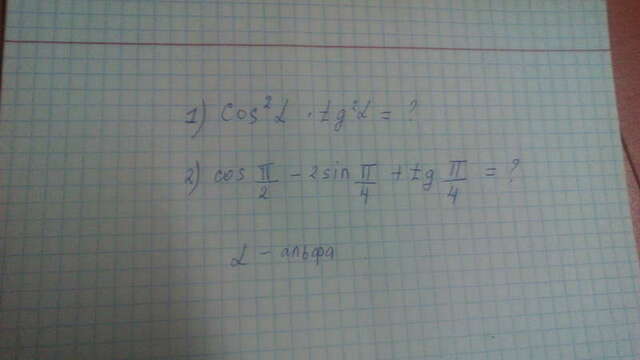 1) cos²α · tg²α = ?
2) cos π/2 - 2 sin π/4 + tg π/4 = ?
α - альфа